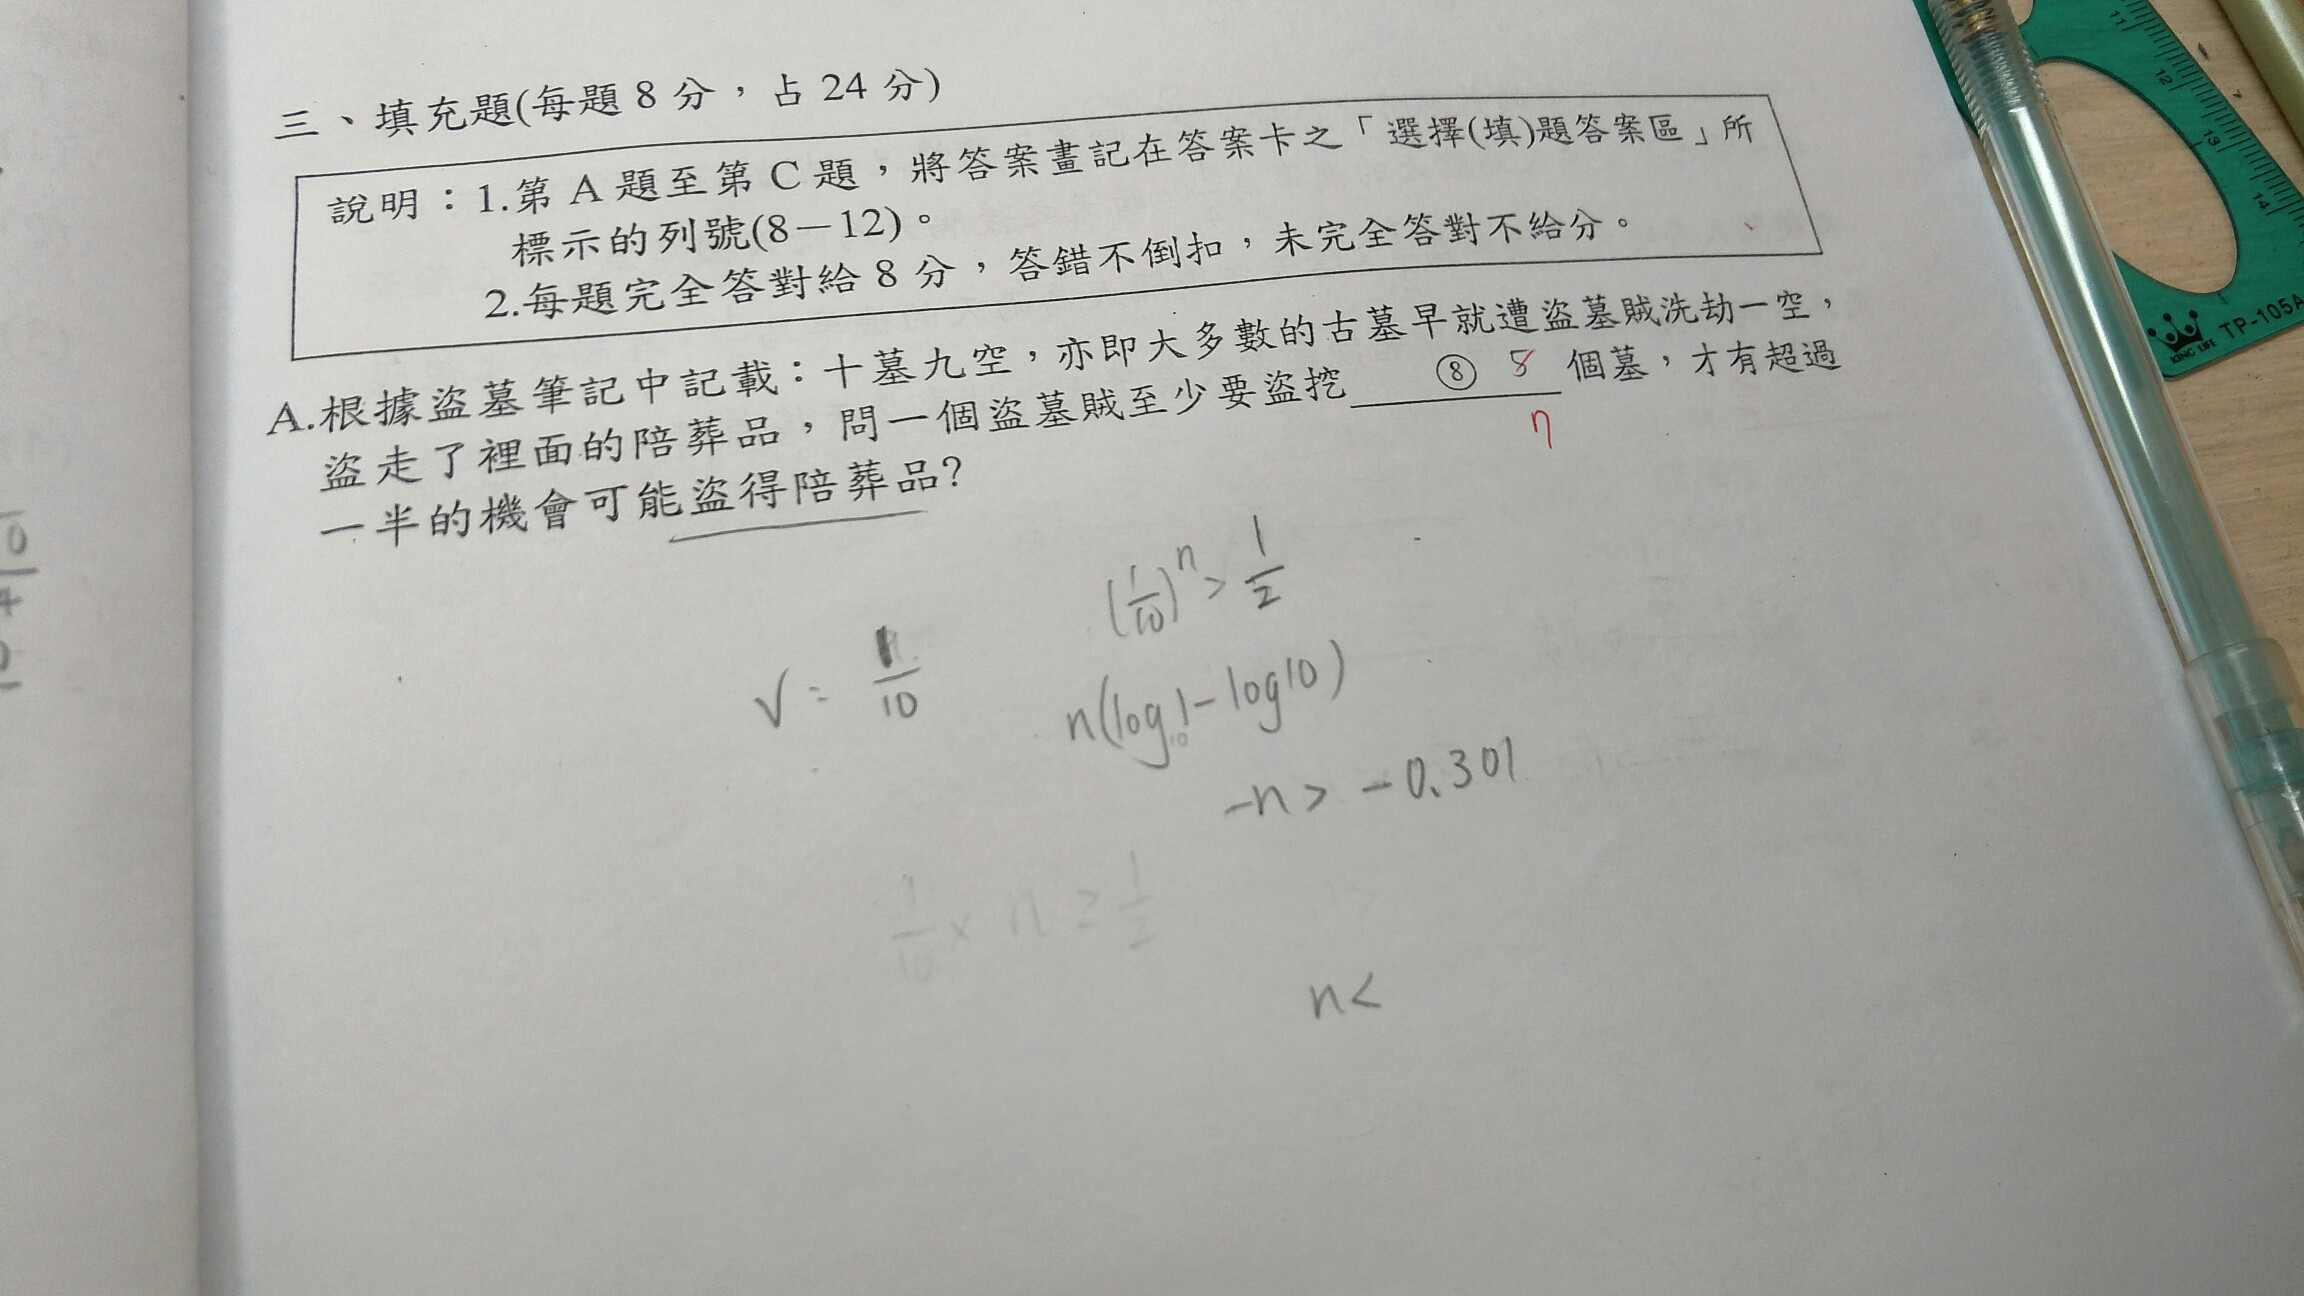 三、填充題(每題 8 分，占 24 分)
說明：1.第 A 題至第 C 題，將答案畫記在答案卡之「選擇(填)題答案區」所
標示的列號(8－12)。
2.每題完全答對給 8 分，答錯不倒扣，未完全答對不給分。
A.根據盜墓筆記中記載：十墓九空，亦即大多數的古墓早就遭盜墓賊洗劫一空，
盜走了裡面的陪葬品，問一個盜墓賊至少要盜挖 ⑧ 8 個墓，才有超過
一半的機會可能盜得陪葬品?
(1/10)^n > 1/2
1/10
n(log1-log10)
-n > -0.301
1/10 × n ≥ 1/2
n<
11
12
13
14
KING LIFE TP-105A
10